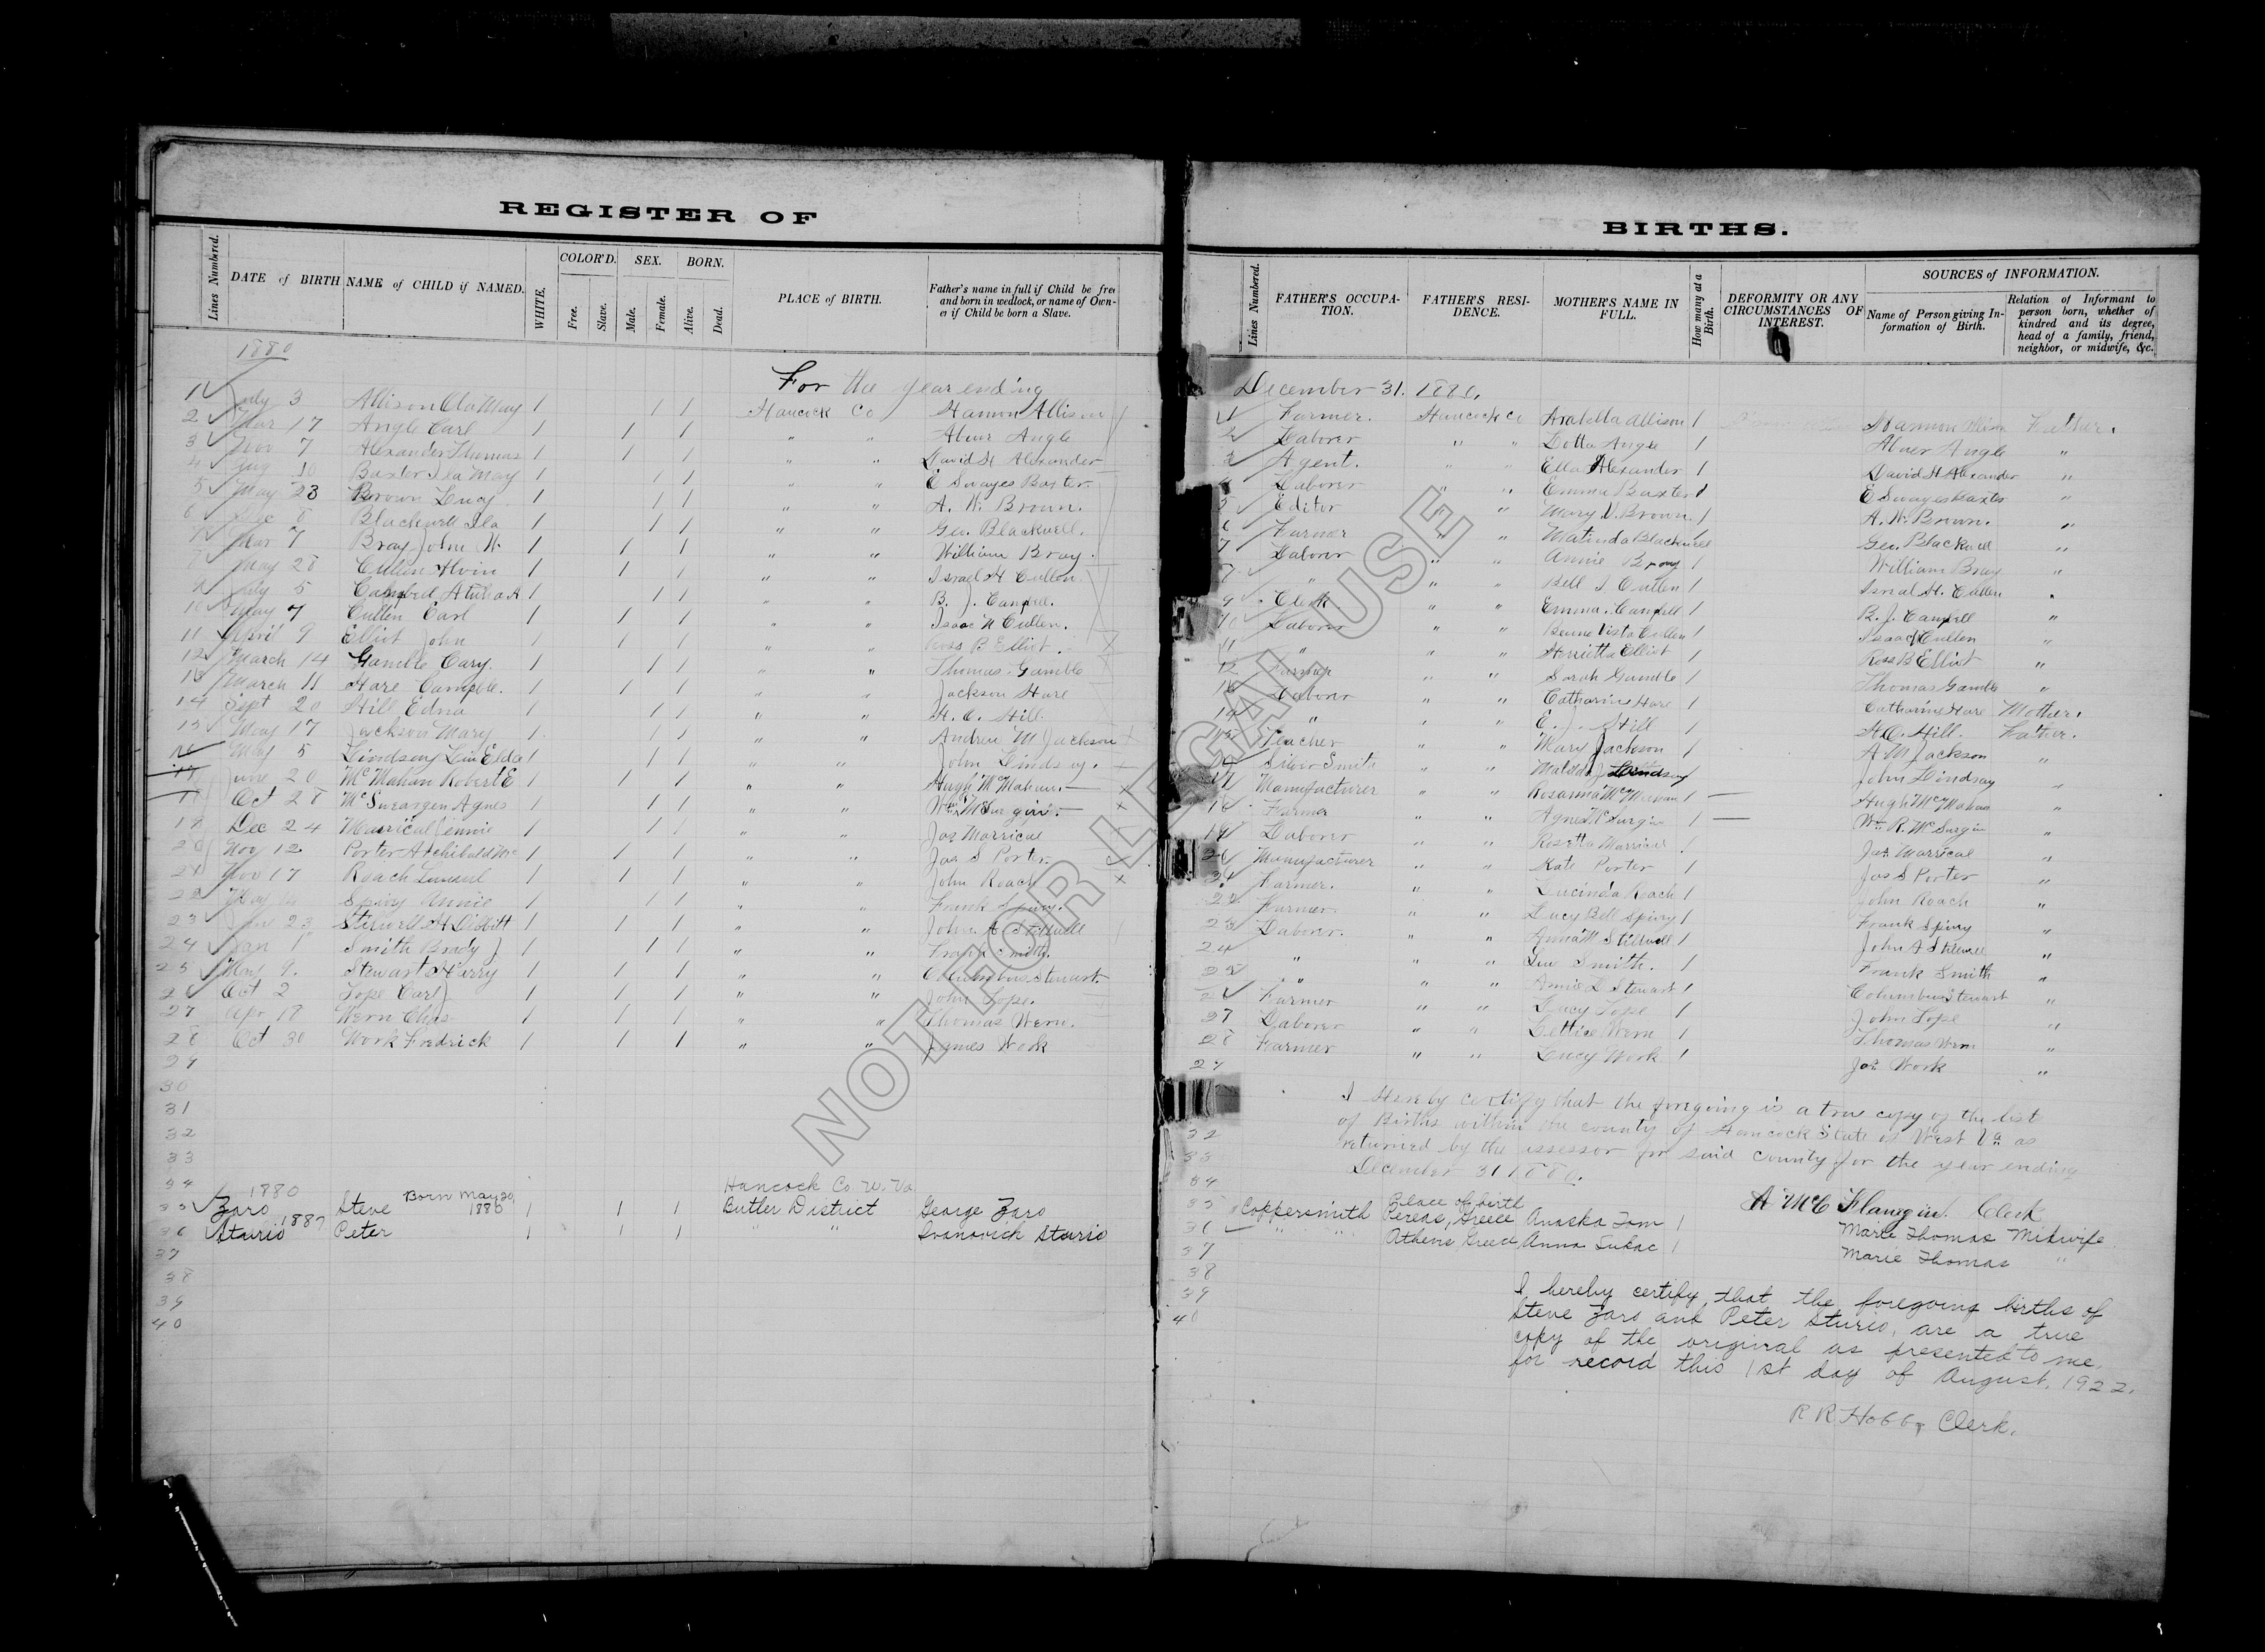 REGISTER OF
BIRTHS.
Lines Numbered. DATE of BIRTH NAME of CHILD if NAMED. WHITE. COLOR'D. Free. Slave. SEX. Male. Female. BORN. Alive. Dead. PLACE of BIRTH. Father's name in full if Child be free and born in wedlock, or name of Owner if Child be born a Slave.
Lines Numbered. FATHER'S OCCUPATION. FATHER'S RESIDENCE. MOTHER'S NAME IN FULL. How many at a Birth. DEFORMITY OR ANY CIRCUMSTANCES OF INTEREST. SOURCES of INFORMATION. Name of Person giving Information of Birth. Relation of Informant to person born, whether of kindred and its degree, head of a family, friend, neighbor, or midwife, &c.
1880
For the year ending December 31. 1880.
1 July 3 Allison Ola May 1 / / Hancock Co Harmon Allison 1 Farmer. Hancock Co Arabella Allison 1 Harmon Father.
2 Mar 17 Angle Carl 1 / / " " Abner Angle 2 Laborer " " Lotta Angle 1 Abner Angle "
3 Nov 7 Alexander Thomas 1 / / " " David H Alexander 3 Agent. " " Ella Alexander 1 David H Alexander "
4 Aug 10 Baxter Ila May 1 / / " " E Swayes Baxter 4 Laborer " " Emma Baxter 1 E Swayes Baxter "
5 May 23 Brown Lucy 1 / / " " A. W. Brown. 5 Editor " " Mary V. Brown 1 A. W. Brown. "
6 Dec 8 Blackwell Ila 1 / / " " Geo. Blackwell. 6 Farmer " " Matinda Blackwell Geo. Blackwell "
7 Mar 7 Bray John W. 1 / / " " William Bray. 7 Laborer " " Annie Bray 1 William Bray "
8 May 28 Cullen Alvin 1 / / " " Israel H Cullen. " " " Bell J Cullen 1 Isral H. Cullen "
9 July 5 Campbell 1 / / " " B. J. Campbell. 9 Clerk " " Emma Campbell 1 B. J. Campbell "
10 May 7 Cullen Earl 1 / / " " Isaac N Cullen. Laborer " " Buena Vista Cullen 1 Isaac Cullen "
11 April 9 Elliot John 1 / / " " Ross B Elliot. 11 " " " Henrietta Elliot 1 Ross B Elliot "
12 March 14 Gamble Cary. 1 / / " " Thomas Gamble 12 Farmer " " Sarah Gamble 1 Thomas Gamble "
13 March 11 Hare Campbell. 1 / / " " Jackson Hare Laborer " " Catharine Hare 1 Catharine Hare Mother.
14 Sept 20 Hill Edna 1 / / " " H. C. Hill. 14 " " " E. J. Hill 1 H. C. Hill. Father.
15 May 17 Jackson Mary 1 / / " " Andrew M Jackson 15 Teacher " " Mary Jackson 1 A M Jackson "
16 May 5 Lindsay 1 / / " " John Lindsay. Silver Smith " " Matilda J Lindsay John Lindsay "
17 June 20 McMahan Robert E 1 / / " " Hugh McMahan. 17 Manufacturer " " Rosanna McMahan 1 Hugh McMahan "
18 Oct 28 Agnes 1 / / " " Farmer " " Agnes McSurgin 1 Wm. R. McSurgin "
19 Dec 24 Jennie 1 / / " " Jas Marrical 19 Laborer " " Rosetta Marrical 1 Jas. Marrical "
20 Nov 12 Porter Archibald Mc 1 / / " " Jas S Porter 20 Manufacturer " " Kate Porter 1 Jas S Porter "
21 Nov 17 Roach 1 / / " " John Roach 21 Farmer. " " Lucinda Roach 1 John Roach "
22 May Spivy Annie 1 / / " " Frank Spivy. 22 Farmer " " Lucy Bell Spivy 1 Frank Spivy "
23 June 23 Stilwell H 1 / / " " John. A Stillwell 23 Laborer. " " Anna M Stillwell 1 John A Stilwell "
24 Jan 1 Smith Brady J 1 / / " " Frank Smith. 24 " " " Smith. 1 Frank Smith "
25 May 9. Stewart Harry 1 / / " " Columbus Stewart 25 " " " Annie L Stewart 1 Columbus Stewart "
26 Oct 2 Tope Carl 1 / / " " John Tope. 26 Farmer " " Lucy Tope 1 John Tope "
27 Apr 17 Wern Chas 1 / / " " Thomas Wern. 27 Laborer " " Lettice Wern 1 Thomas Wern "
28 Oct 30 Work Fredrick 1 / / " " James Work 28 Farmer " " Lucy Work 1 Jas. Work "
29
30
31
32
33
34
I Hereby certify that the foregoing is a true copy of the list
of Births within the county of Hancock State of West Va as
returned by the assessor for said county for the year ending
December 31 1880.
A McC Flanegin. Clerk
1880 Hancock Co. W. Va
35 Zaro Steve Born May 20, 1880 1 / / Butler District George Zaro Coppersmith Place of birth Pereas, Greece Anaska Tom 1 Marie Thomas Midwife
36 Sturio 1887 Peter 1 / / " " Ivanovich Sturio " " Athens Greece Anna Subac 1 Marie Thomas "
37
38
39
40
I hereby certify that the foregoing births of
Steve Zaro and Peter Sturio, are a true
copy of the original as presented to me
for record this 1st day of August, 1922.
R R Hobbs, Clerk.
NOT FOR LEGAL USE